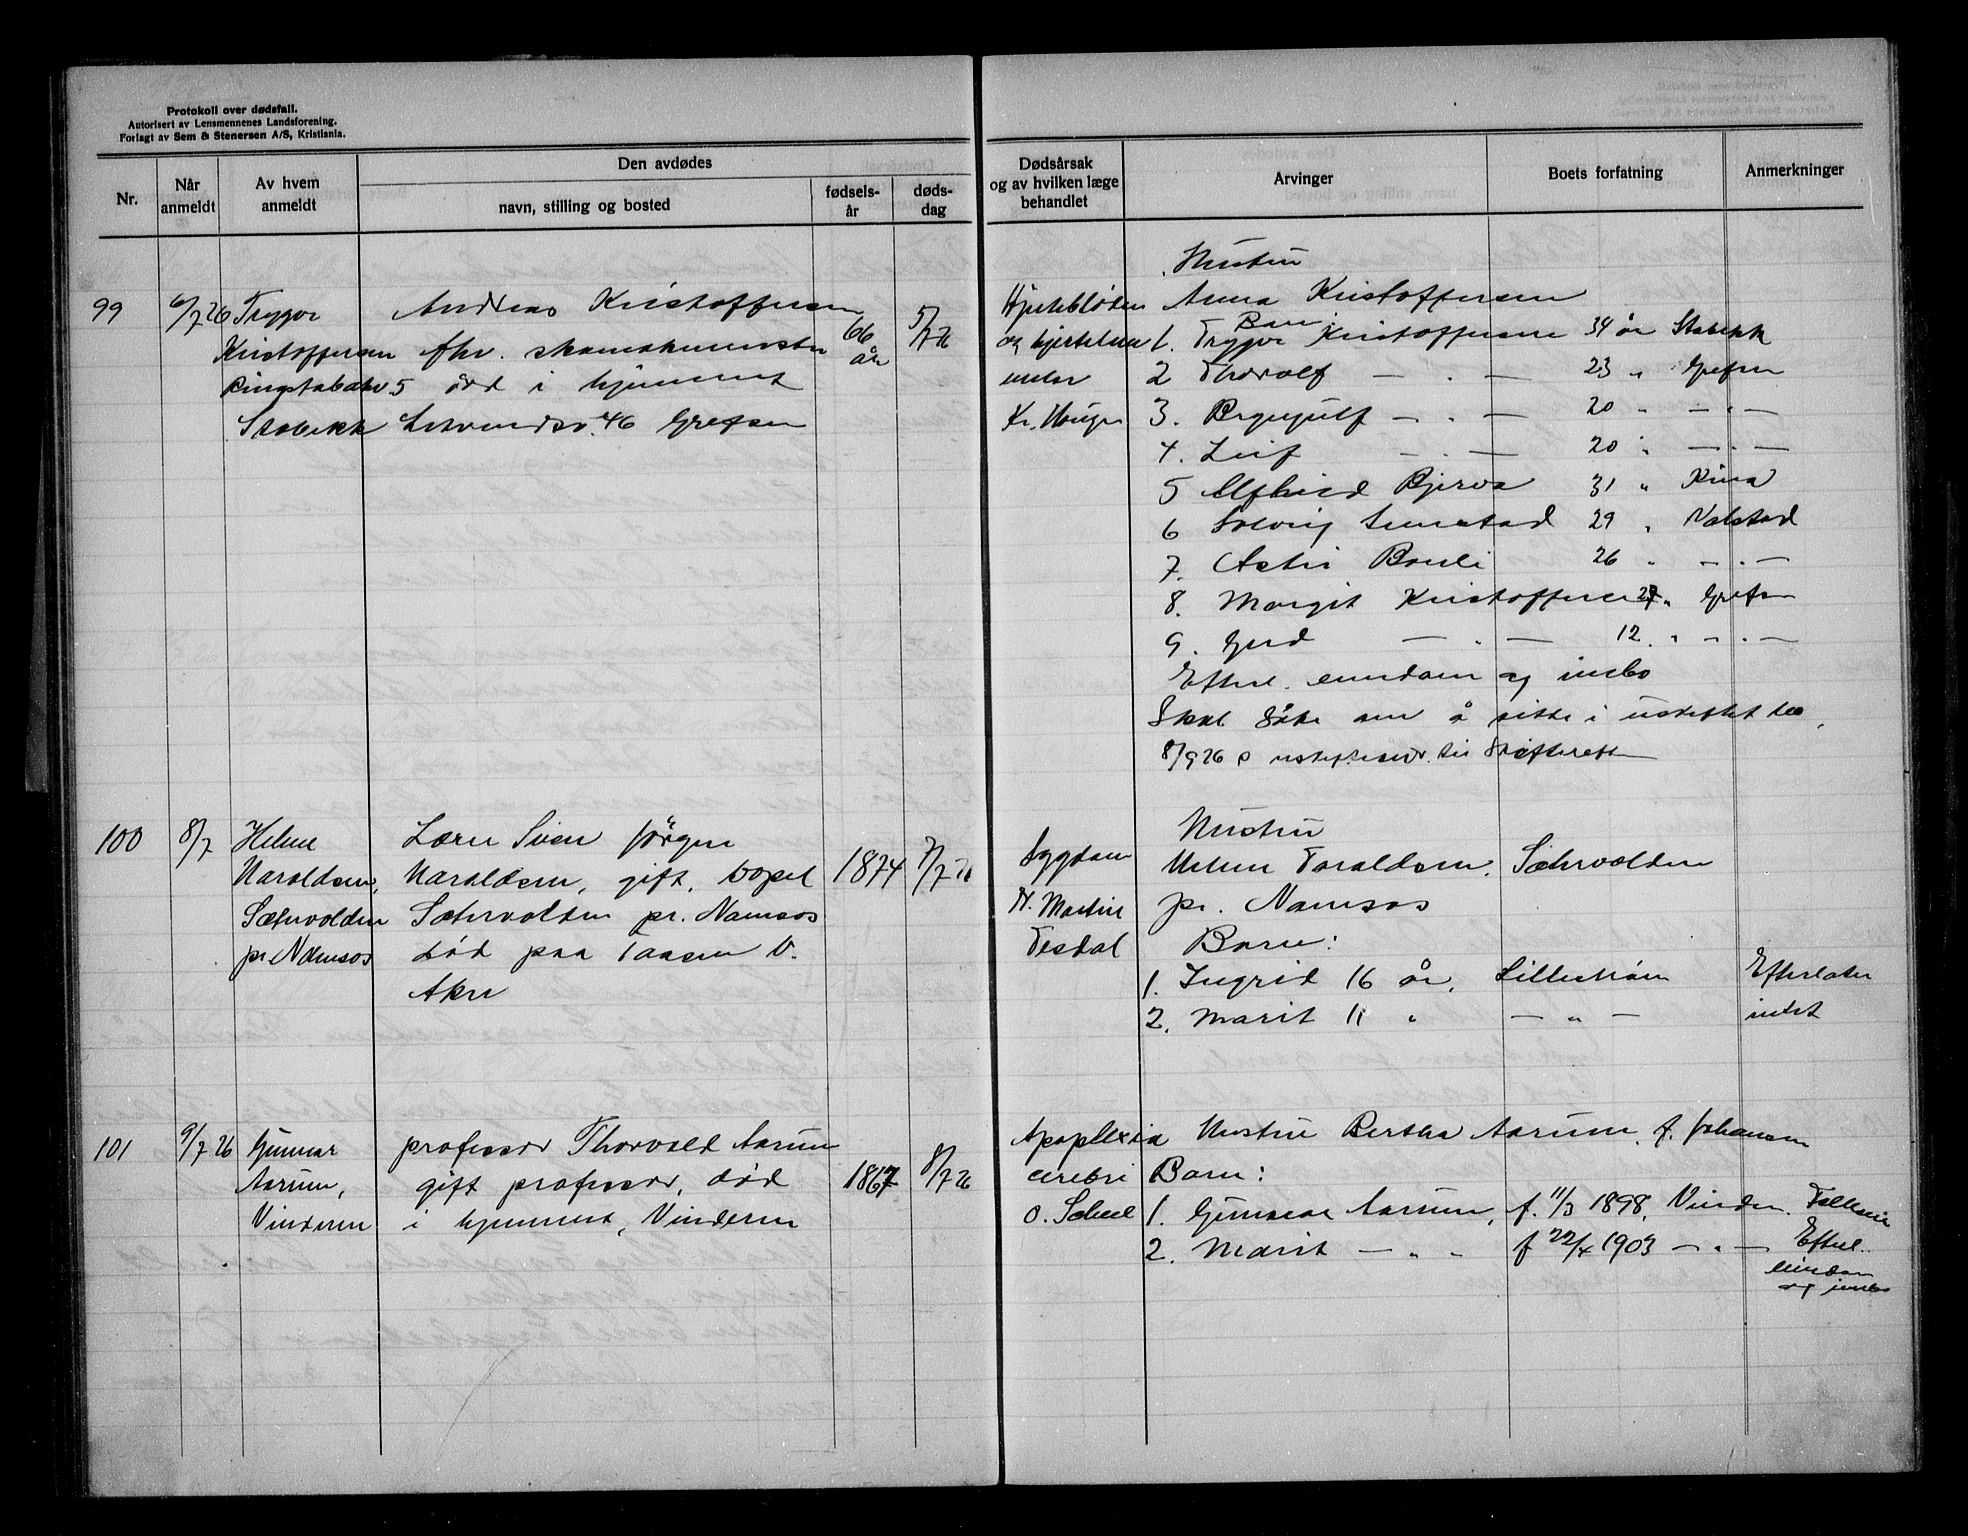 Protokoll over dødsfall.
Autorisert av Lensmennenes Landsforening.
Forlagt av Sem & Stenersen A/S, Kristiania.
Nr.
Når anmeldt
Av hvem anmeldt
Den avdødes
navn, stilling og bosted
fødsels-år
døds-dag
Dødsårsak og av hvilken læge behandlet
Arvinger
Boets forfatning
Anmerkninger
99
6/7 26
Trygve
Kristoffersen
Ringstabækv 5
Stabekk
Andreas Kristoffersen
fhv. skomakermester
død i hjemmet
46 Grefsen
66 år
5/7 26
og
Hustru
Anna Kristoffersen
Barn:
1. Trygve Kristoffersen 34 år Stabekk
2 Thoralf — . — 23 " Grefsen
3. Brynjulf — . — 20 " — . —
4. Leif — . — 20 " — . —
5 Alfhild Bjerva 31 " Kina
6 Solveig 29 " Valstad
7. Astri 26 " — . —
8. Margit Kristoffersen 27 " Grefsen
9. Gerd — . — 12. " — . —
Efterl. eiendom og indbo
Skal søke om å sitte i uskiftet bo.
8/9 26 til Skifteretten
100
8/7
Helene
Haraldsen,
Sætervolden
pr. Namsos
Lærer Sven Jörgen
Haraldsen, gift, bopel
Sætervolden pr. Namsos
død paa Taasen V.
Aker
1874
7/7 26
Sygdom
Tesdal
Hustru
Helene Haraldsen. Sætervolden
pr. Namsos
Barn:
1. Ingrid 16 år, Lillestrøm
2. Marit 11 " — " —
Efterlater
intet
101
9/7 26
Gunnar
Aarum,
Vinderen
professor Thorvald Aarum
gift professor, død
i hjemmet, Vinderen
1867
8/7 26
Apoplexia
cerebri
O. Scheel
Hustru Bertha Aarum, f. Johansen
Barn:
1. Gunnar Aarum, f. 11/3 1898, Vinderen.
2. Marit — " " f 22/4 1903 — " —
Fælleseie
Efterl.
eiendom
og innbo